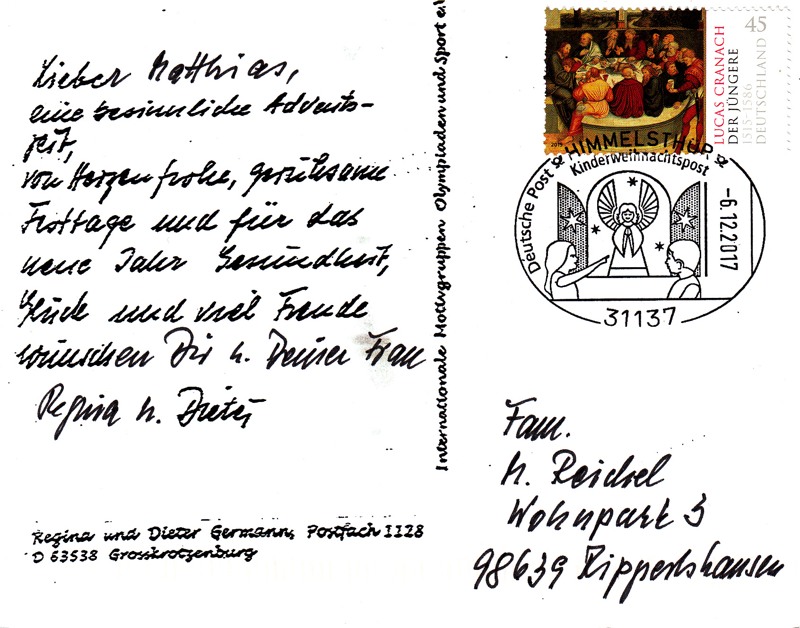 Lieber Matthias,
eine besinnliche Advents-
zeit,
von Herzen frohe, geruhsame
Festtage und für das
neue Jahr Gesundheit,
Glück und viel Freude
wünschen Dir u. Deiner Frau
Regina u. Dieter
Regina und Dieter Germann, Postfach 1128
D 63538 Grosskrotzenburg
Internationale Motivgruppen Olympiaden und Sport e.V
45
LUCAS CRANACH
DER JÜNGERE
1515–1586
DEUTSCHLAND
HIMMELSTHÜR
Kinderweihnachtspost
Deutsche Post
-6.12.2017
31137
Fam.
M. Reichel
Wohnpark 3
98639 Rippershausen